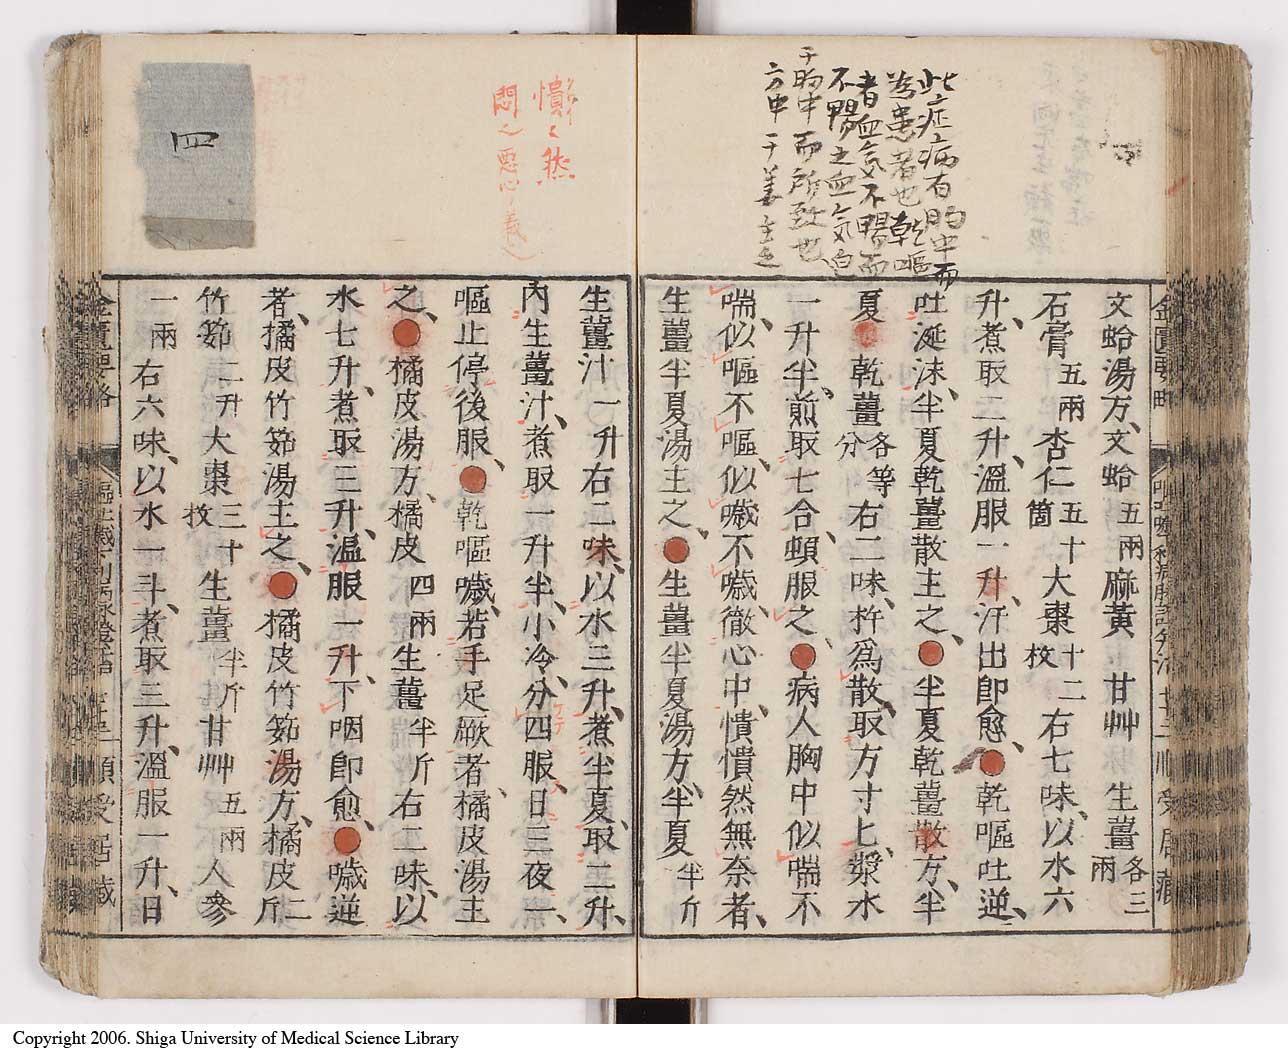 此症病有胸中而
為患者也乾嘔
者血気不暢而
不暢之血気
胸中而所致也
文蛤湯方、文蛤五兩麻黃甘艸生薑各三兩
石膏五兩杏仁五十箇大棗十二枚右七味、以水六
升、煮取二升、溫服一升、汗出即愈、乾嘔吐逆、
吐涎沫、半夏乾薑散主之、半夏乾薑散方、半
夏乾薑各等分右二味、杵爲散、取方寸匕、漿水
一升半、煎取七合、頓服之、病人胸中似喘不
喘、似嘔不嘔、似噦不噦、徹心中、憒憒然無奈者、
生薑半夏湯主之、生薑半夏湯方、半夏半斤
憒〻然
生薑汁一升右二味、以水三升、煮半夏、取二升、
內生薑汁、煮取一升半、小冷、分四服、日三夜一、
嘔止停後服、乾嘔噦、若手足厥者、橘皮湯主
之、橘皮湯方、橘皮四兩生薑半斤右二味、以
水七升、煮取三升、溫服一升、下咽即愈、噦逆
者、橘皮竹筎湯主之、橘皮竹筎湯方、橘皮二斤
竹筎二升大棗三十枚生薑半斤甘艸五兩人參
一兩右六味、以水一斗、煮取三升、溫服一升、日
四
Copyright 2006. Shiga University of Medical Science Library